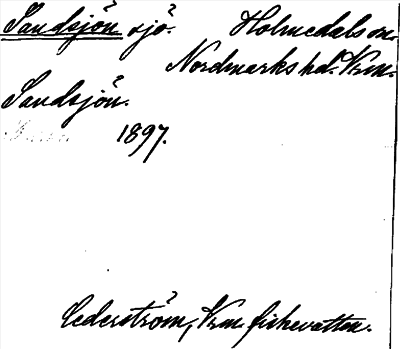 Sandsjön sjö. Holmedals sn.
Nordmarks hd. Vrm.
Sandsjön.
1897.
Cederström, Vrm. fiskevatten.